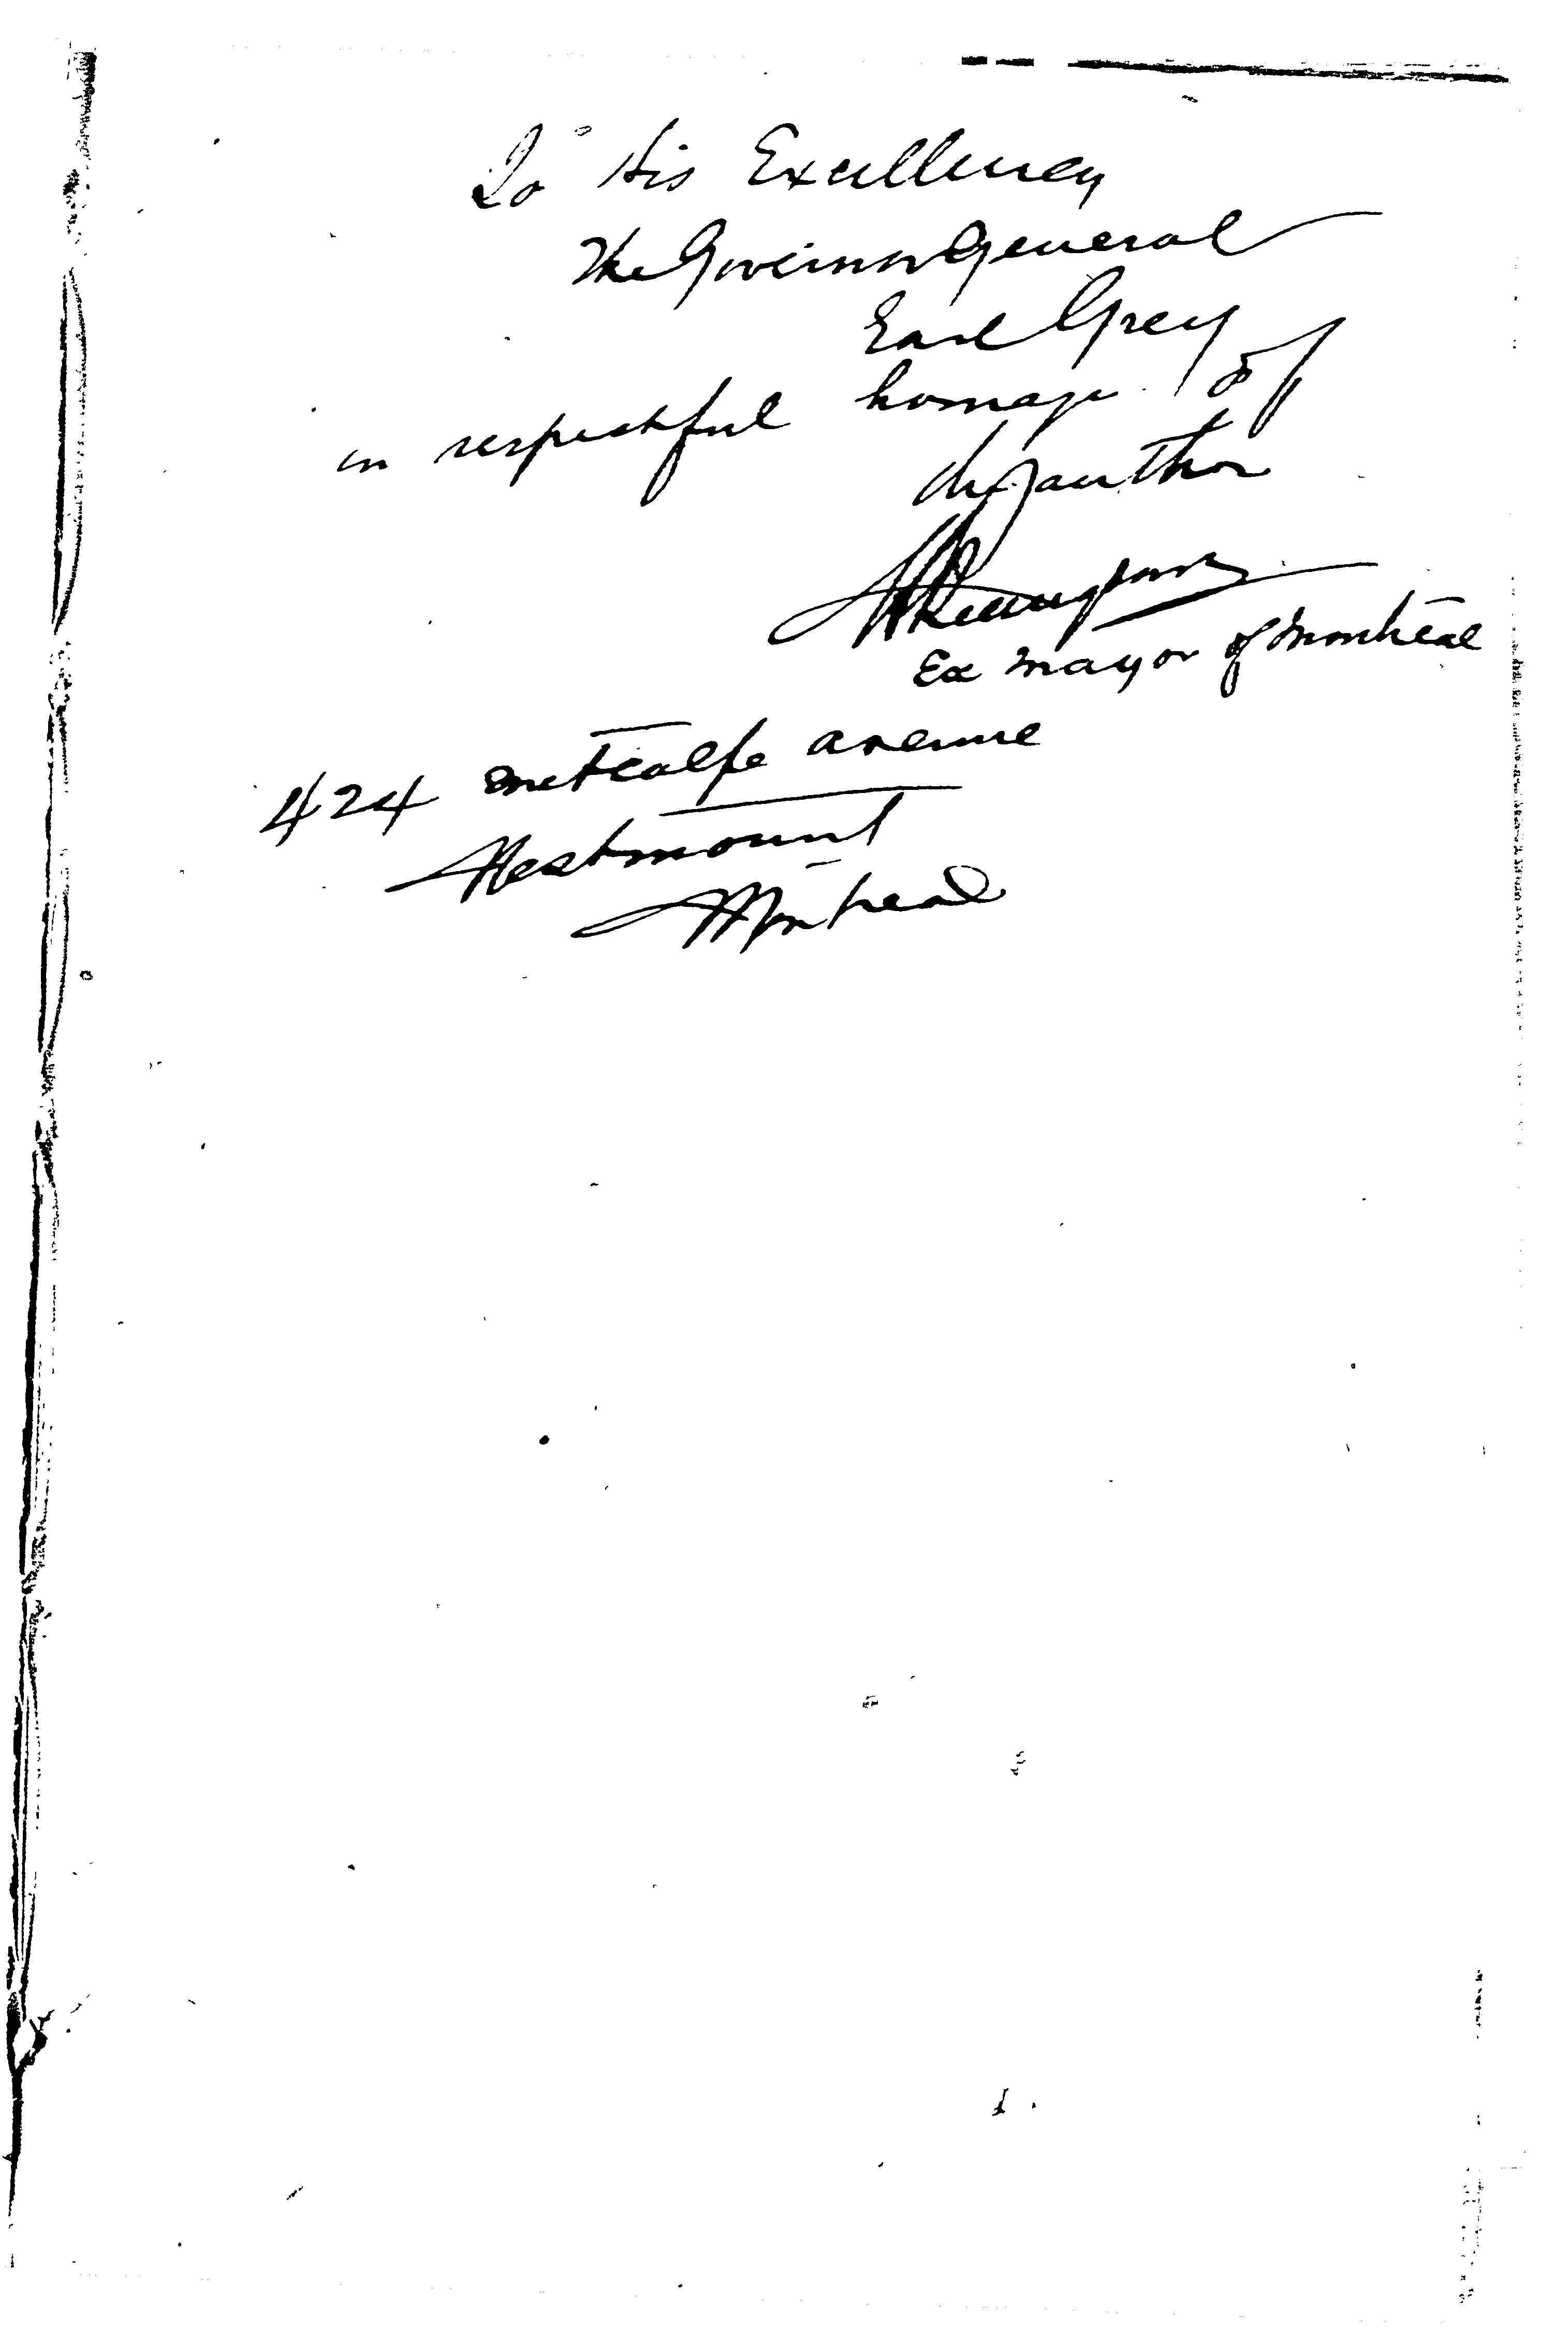 To His Excellency
The Governor General
Earl Grey
in respectful homage of
the author
H Beaugrand
Ex mayor of Montreal
424 Metcalfe avenue
Westmount
Montreal